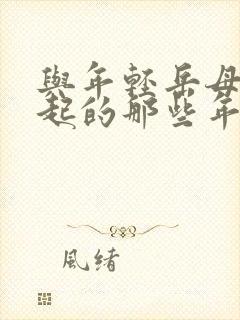 與年輕岳母
起的那些年
風緒